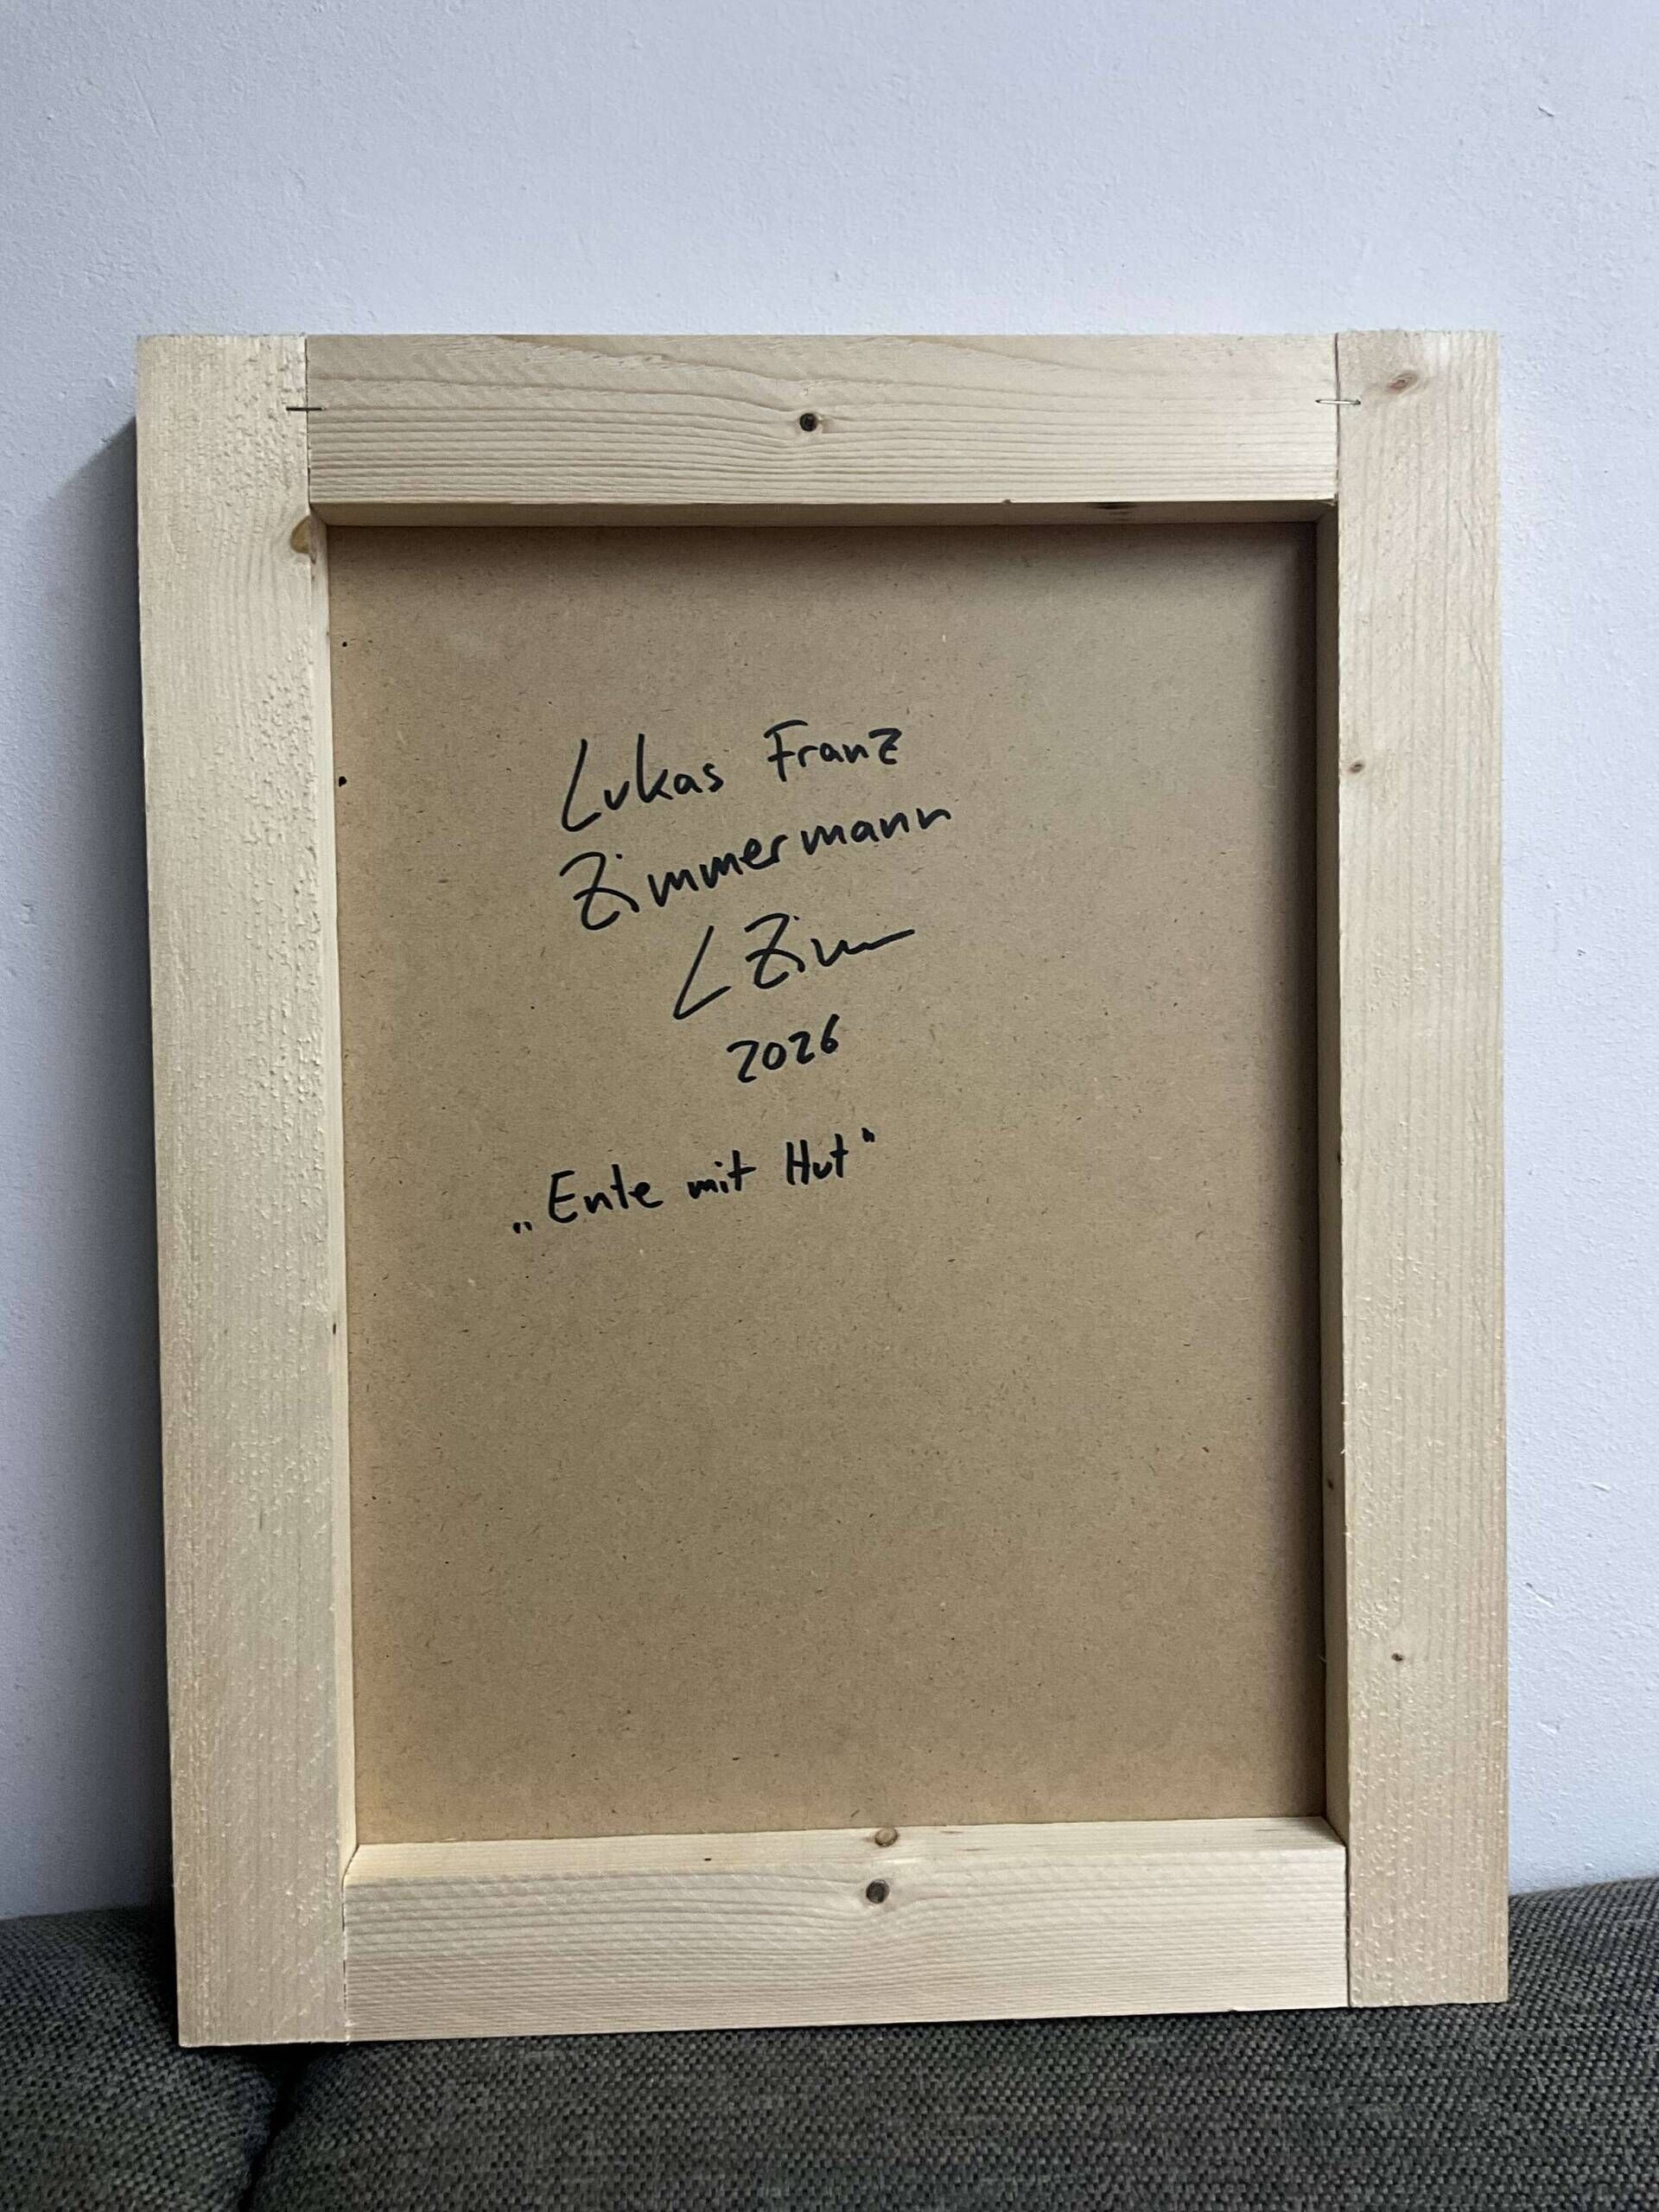 Lukas Franz
Zimmermann
L Zim
2026
„Ente mit Hut“